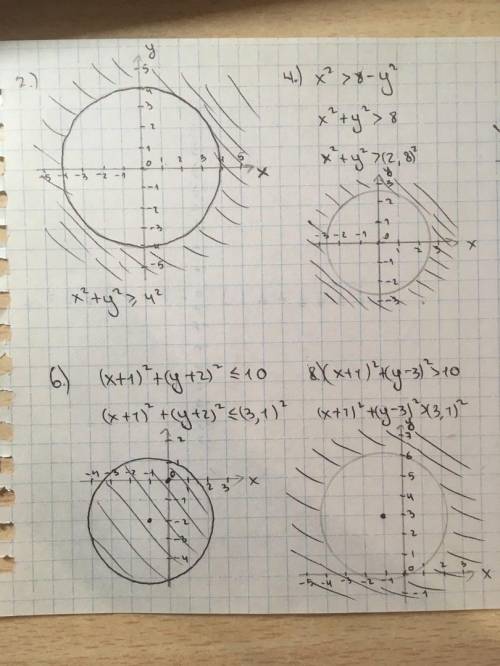 2.)
y
5
4
3
2
1
-5 -4 -3 -2 -1 0 1 2 3 4 5 x
-1
-2
-3
-4
-5
x² + y² ⩾ 4²
4.) x² > 8 - y²
x² + y² > 8
x² + y² > (2,8)²
y
3
2
1
-3 -2 -1 0 1 2 3 x
-1
-2
-3
6.) (x+1)² + (y+2)² ≤ 10
(x+1)² + (y+2)² ≤ (3,1)²
2
-4 -3 -2 -1 1 2 3 x
-2
-3
-4
8.) (x+1)² + (y-3)² > 10
(x+1)² + (y-3)² > (3,1)²
y
7
6
5
4
3
2
1
0
-5 -4 -3 -2 -1 1 2 3 x
-1